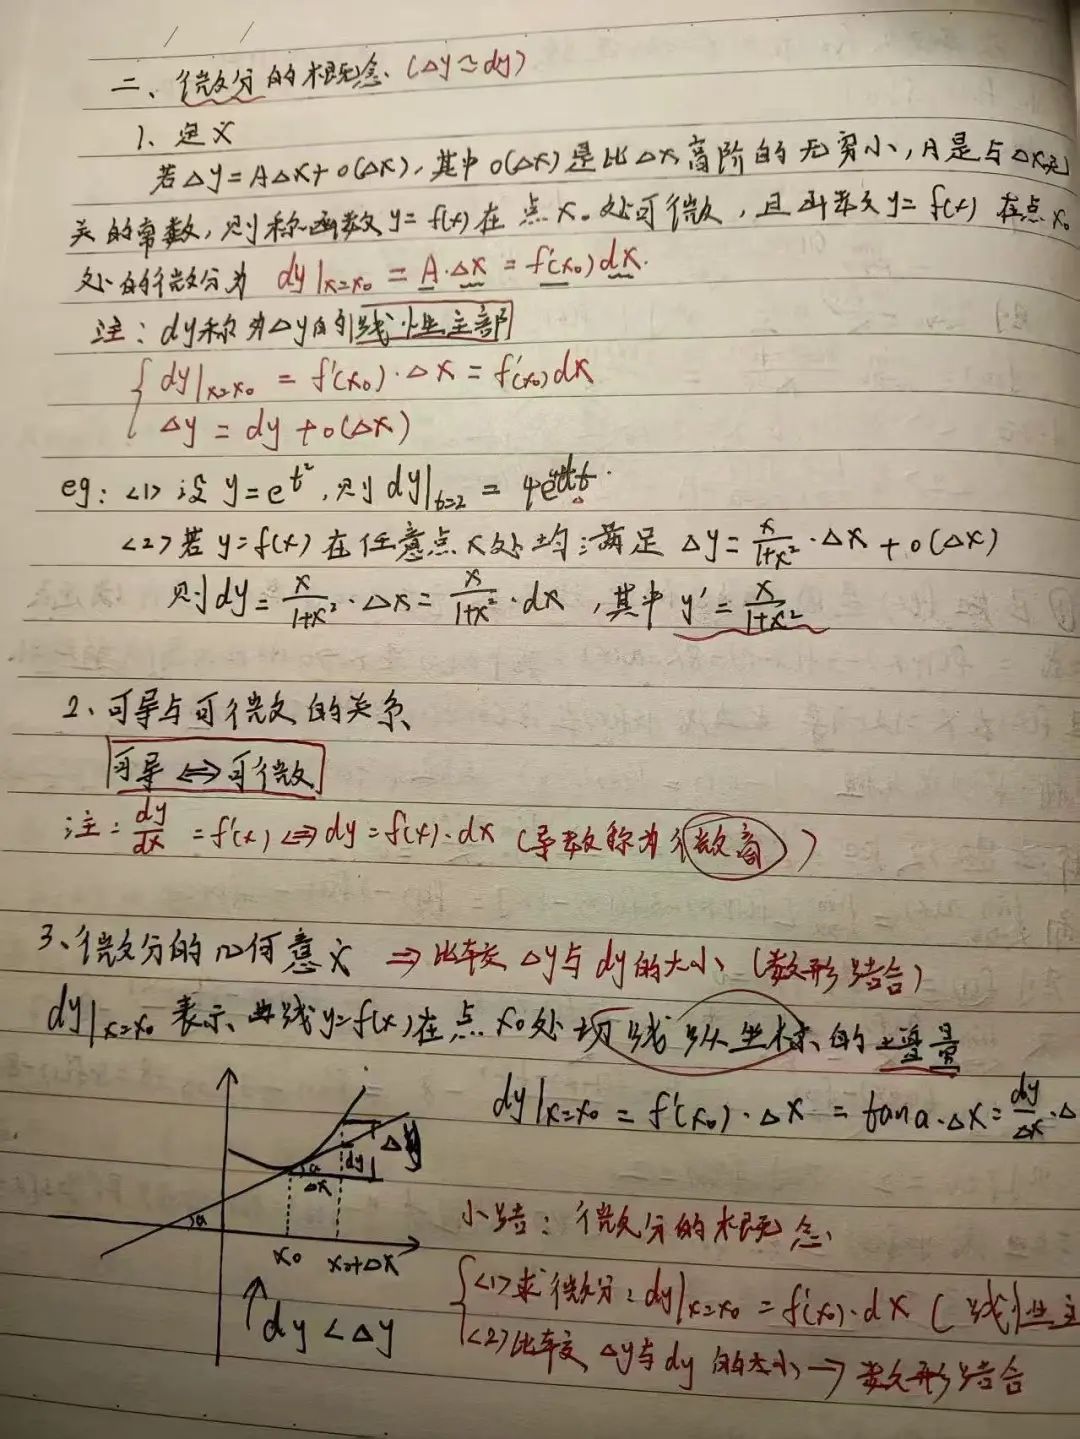 二、微分的概念.(Δy≈dy)
1、定义
若Δy=AΔx+o(Δx),其中o(Δx)是比Δx高阶的无穷小,A是与Δx无
关的常数,则称函数y=f(x)在点x₀处可微,且函数y=f(x)在点x₀
处的微分为 dy|x=x₀ = A·Δx = f'(x₀)dx.
注:dy称为Δy的线性主部
dy|x=x₀ = f'(x₀)·Δx = f'(x₀)dx
Δy = dy + o(Δx)
eg:<1>设 y=e^t²,则dy|t=2 = 4e⁴dt.
<2>若y=f(x)在任意点x处均满足 Δy= x/1+x² ·Δx + o(Δx)
则dy= x/1+x² ·Δx= x/1+x² ·dx ,其中 y'= x/1+x²
2、可导与可微的关系
可导⇔可微
注:dy/dx = f'(x)⇔dy=f'(x)·dx (导数称为微商)
3、微分的几何意义 ⇒比较Δy与dy的大小(数形结合)
dy|x=x₀ 表示曲线y=f(x)在点x₀处切线纵坐标的增量
dy|x=x₀ = f'(x₀)·Δx = tanα·Δx= dy/Δx ·Δ
Δy
dy
α
Δx
α
x₀ x₀+Δx
dy<Δy
小结:微分的概念
<1>求微分:dy|x=x₀ = f'(x₀)·dx (线性主
<2>比较Δy与dy的大小→数形结合